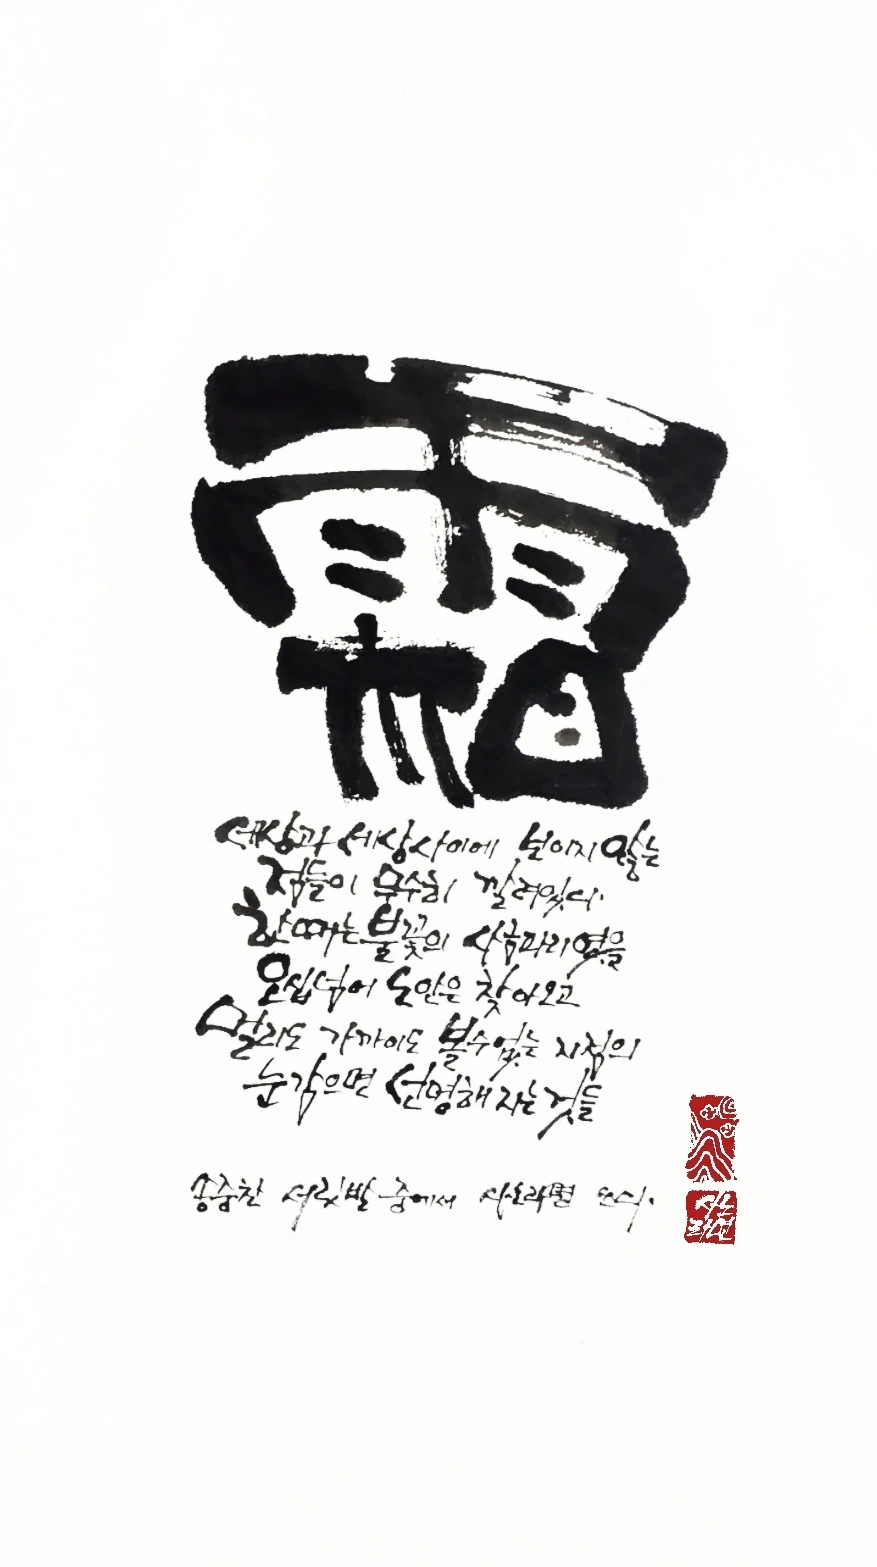 霜
세상과 세상 사이에 않는
점들이 무수히 깔려있다.
한때는 불꽃의 사금파리였을
오십 넘어 노안은 찾아오고
멀리도 가까이도 볼 수 없는 지점의
눈 감으면 선명해지는 것들
송종찬 서릿발 중에서 사노라면
사노
라면